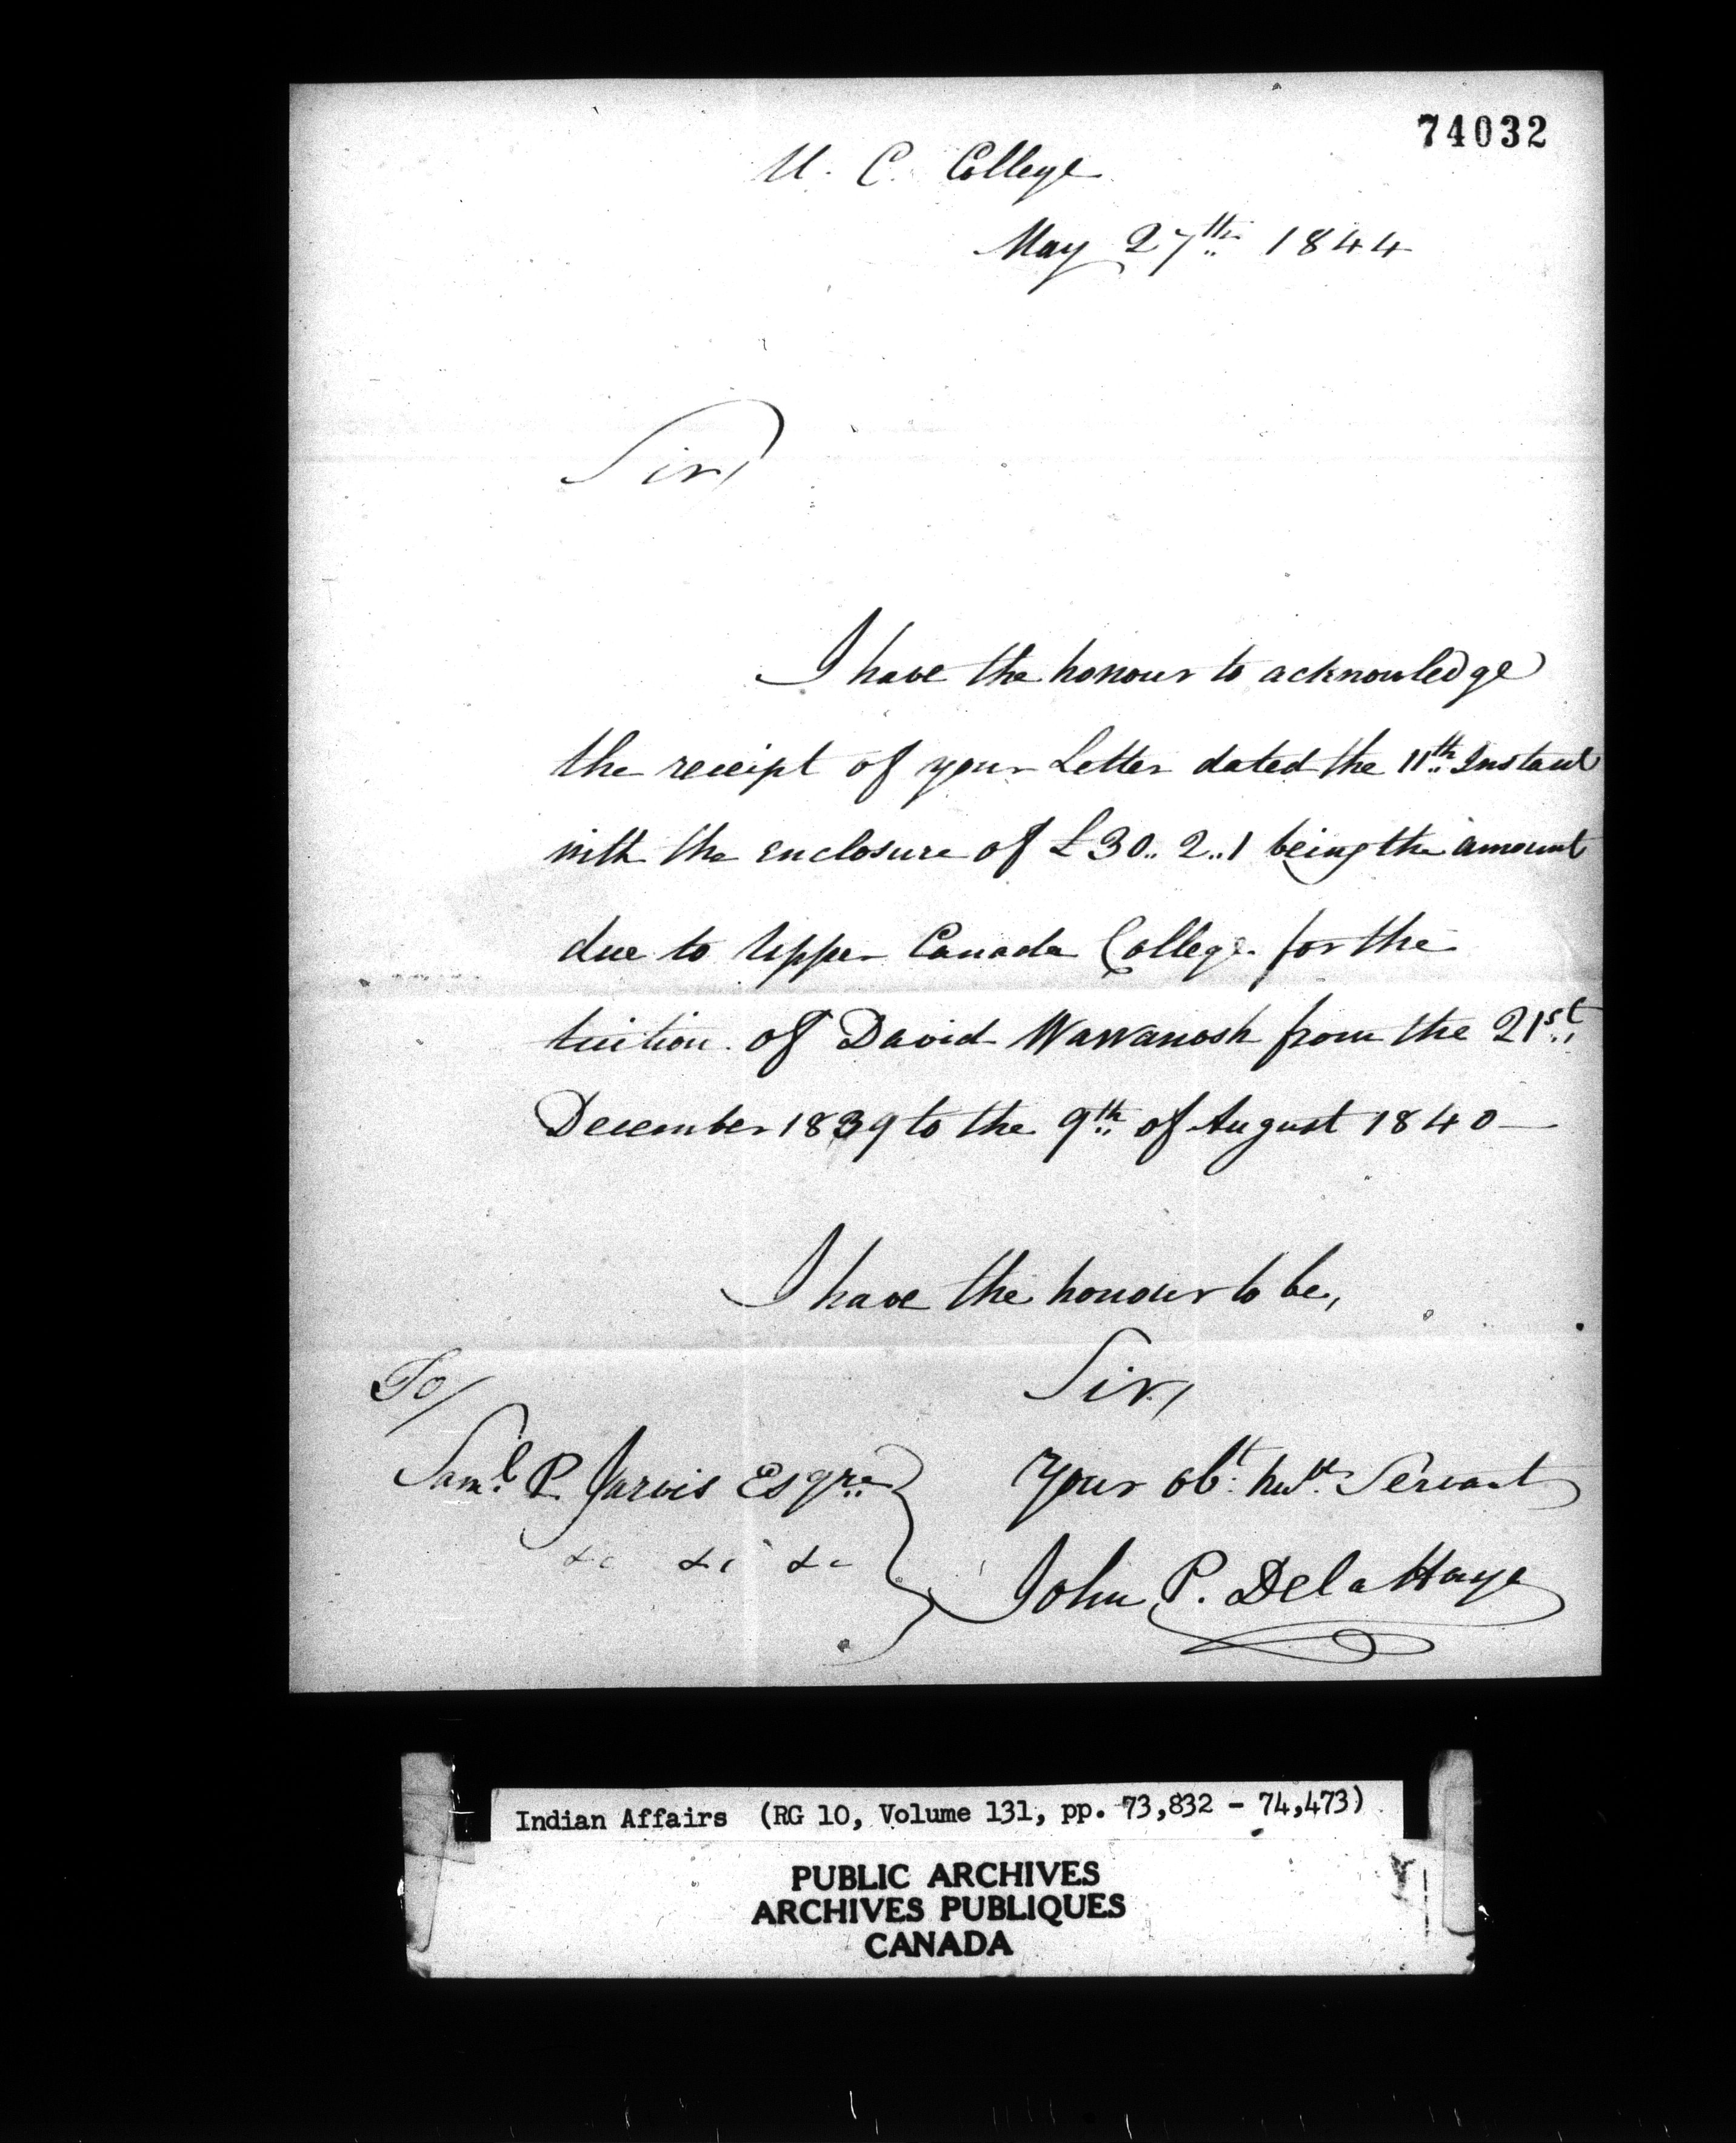 74032
U. C. College
May 27th 1844
Sir,
I have the honour to acknowledge
the receipt of your Letter dated the 11th Instant
with the enclosure of £30..2..1 being the amount
due to Upper Canada College for the
tuition of David Wawanosh from the 21st
December 1839 to the 9th of August 1840—
I have the honour to be,
Sir,
To/
Saml P. Jarvis Esqre
&c &c &c
Your obt. hule. Servant
John P. De la Haye
Indian Affairs (RG 10, Volume 131, pp. 73,832 - 74,473)
PUBLIC ARCHIVES
ARCHIVES PUBLIQUES
CANADA